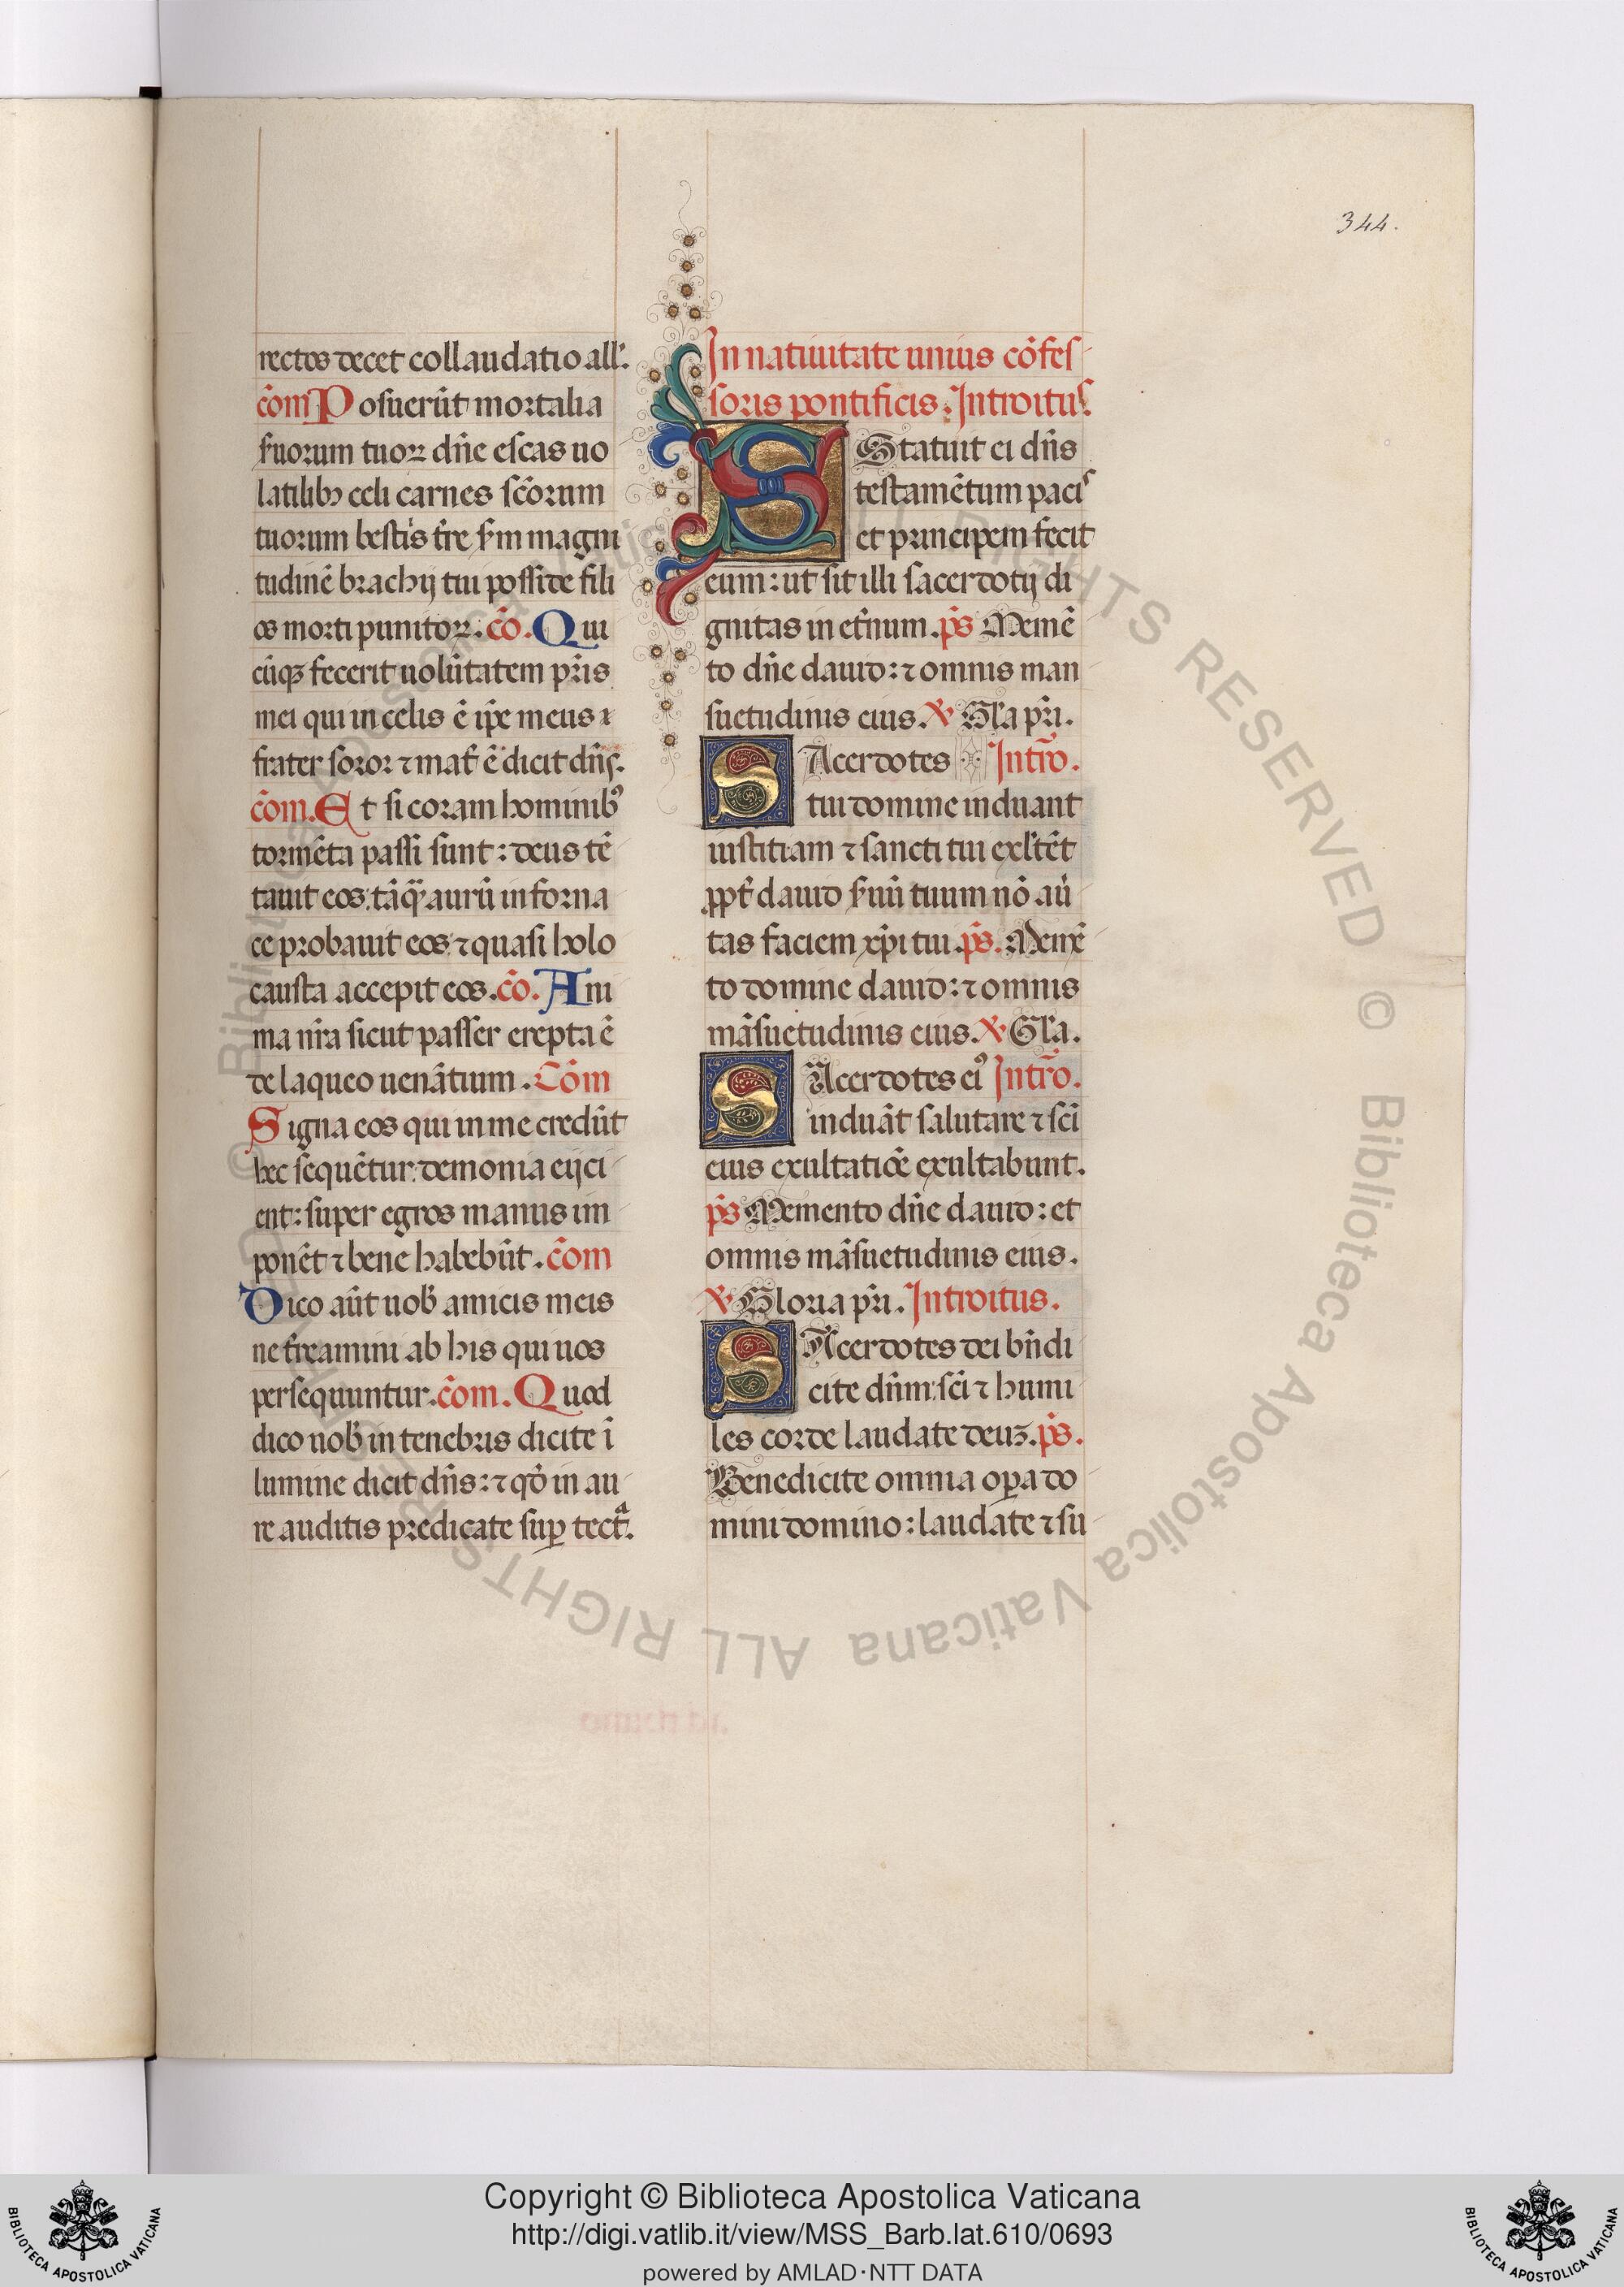 344.
rectos decet collaudatio all'.
cõm Posuerũt mortalia
suorum tuoꝝ dñe escas uo
latilibꝫ celi carnes sc̃orum
tuorum bestĩs tr̃e s̃m magni
tudinẽ brachij tui posside fili
os morti punitoꝝ. cõ. Qui
cũqꝫ fecerit uolũtatem pr̃is
mei qui in celis ẽ ip̃e meus ⁊
frater soror ⁊ mat̃ ẽ dicit dñs.
cõm. Et si coram hominibꝰ
tormẽta passi sunt: deus tẽ
tauit eos. tãq̃ aurũ in forna
ce probauit eos ⁊ quasi holo
causta accepit eos. cõ. Ani
ma nr̃a sicut passer erepta ẽ
de laqueo uenãtium. Cõm
Signa eos qui in me credũt
hec sequẽtur: demonia eijci
ent: super egros manus im
ponẽt ⁊ bene habebũt. cõm
Dico aũt uob̾ amicis meis
ne tr̃eamini ab his qui uos
persequuntur. cõm. Quod
dico uob̾ in tenebris dicite ĩ
lumine dicit dñs: ⁊ qð in au
re auditis predicate suꝑ tectᵃ.
In natiuitate unius cõfes
soris pontificis. Introitus.
Statuit ei dñs
testamẽtum pacis
et principem fecit
eum: ut sit illi sacerdotij di
gnitas in et̃num. p̃s Memẽ
to dñe dauid: ⁊ omnis man
suetudinis eius. ℣ Gl̃a pr̃i.
SAcerdotes Intr̃o.
tui domine induant
iustitiam ⁊ sancti tui exl̃tẽt
ꝓpt̃ dauid s̃uũ tuum nõ aũ
tas faciem xp̃i tui. p̃s. Memẽ
to domine dauid: ⁊ omnis
mãsuetudinis eius. ℣ Gl̃a.
SAcerdotes eiꝰ Intr̃o.
induãt salutare ⁊ sc̃i
eius exultatiõe exultabunt.
p̃s Memento dñe dauid: et
omnis mãsuetudinis eius.
℣ Gloria pr̃i. Introitus.
SAcerdotes dei bñdi
cite dñm: sc̃i ⁊ humi
les corde laudate deuꝫ. p̃s.
Benedicite omnia oꝑa do
mini domino: laudate ⁊ su
© Biblioteca Apostolica Vaticana ALL RIGHTS RESERVED
Copyright © Biblioteca Apostolica Vaticana
http://digi.vatlib.it/view/MSS_Barb.lat.610/0693
powered by AMLAD·NTT DATA
BIBLIOTECA APOSTOLICA VATICANA
BIBLIOTECA APOSTOLICA VATICANA